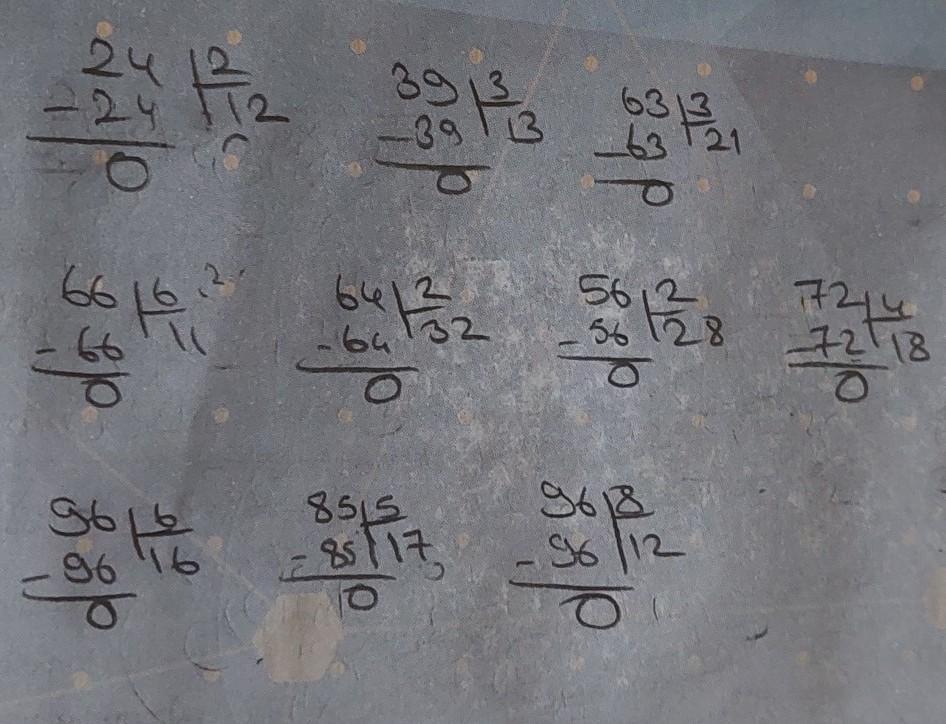 24 2 39 3 63 3
-24 12 -39 13 -63 21
0 0 0
66 6 64 2 56 2 72 4
-66 11 -64 32 -56 28 -72 18
0 0 0 0
96 6 85 5 96 8
-96 16 -85 17 -96 12
0 0 0